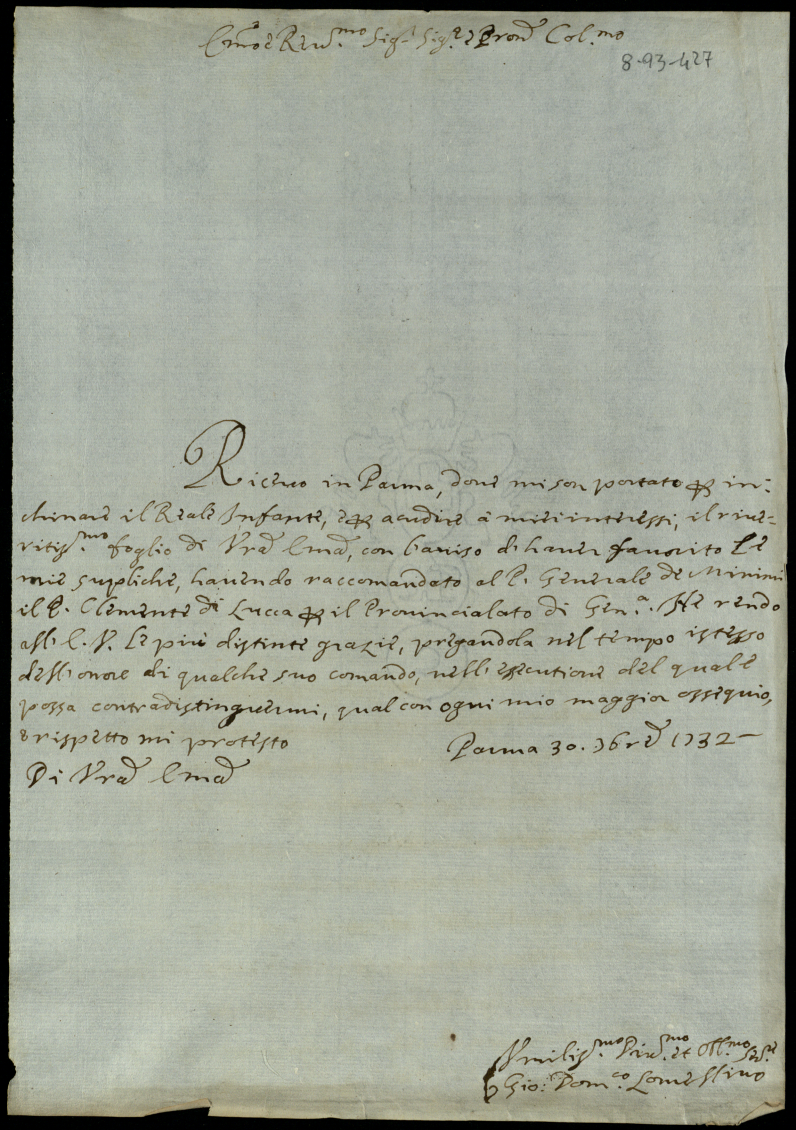 Em̃o e Reu.mo Sig.r Sig.re e Pron̄ Col.mo
8-93-427
Riceuo in Parma, doue mi son portato per in:
chinare il Reale Infante, e per acudire à miei interessi, il riue=
ritiss.mo foglio di Vr̄a Em̄a, con l'auiso di hauer fauorito Le
mie supliche, hauendo raccomandato al P. Generale de Minimi
il P. Clemente di Lucca per il Prouincialato di Gen.a. Ne rendo
all'E. V. Le più distinte grazie, pregandola nel tempo istesso
dell'onore di qualche suo comando, nell'essecutione del quale
possa contradistinguermi, qual con ogni mio maggior ossequio,
e rispetto mi protesto
Parma 30. 96rē 1732
Di Vr̄a Em̄a
Vmiliss.mo Diu.mo et Obl.mo Ser.re
Gio: Dom.co Lomellino